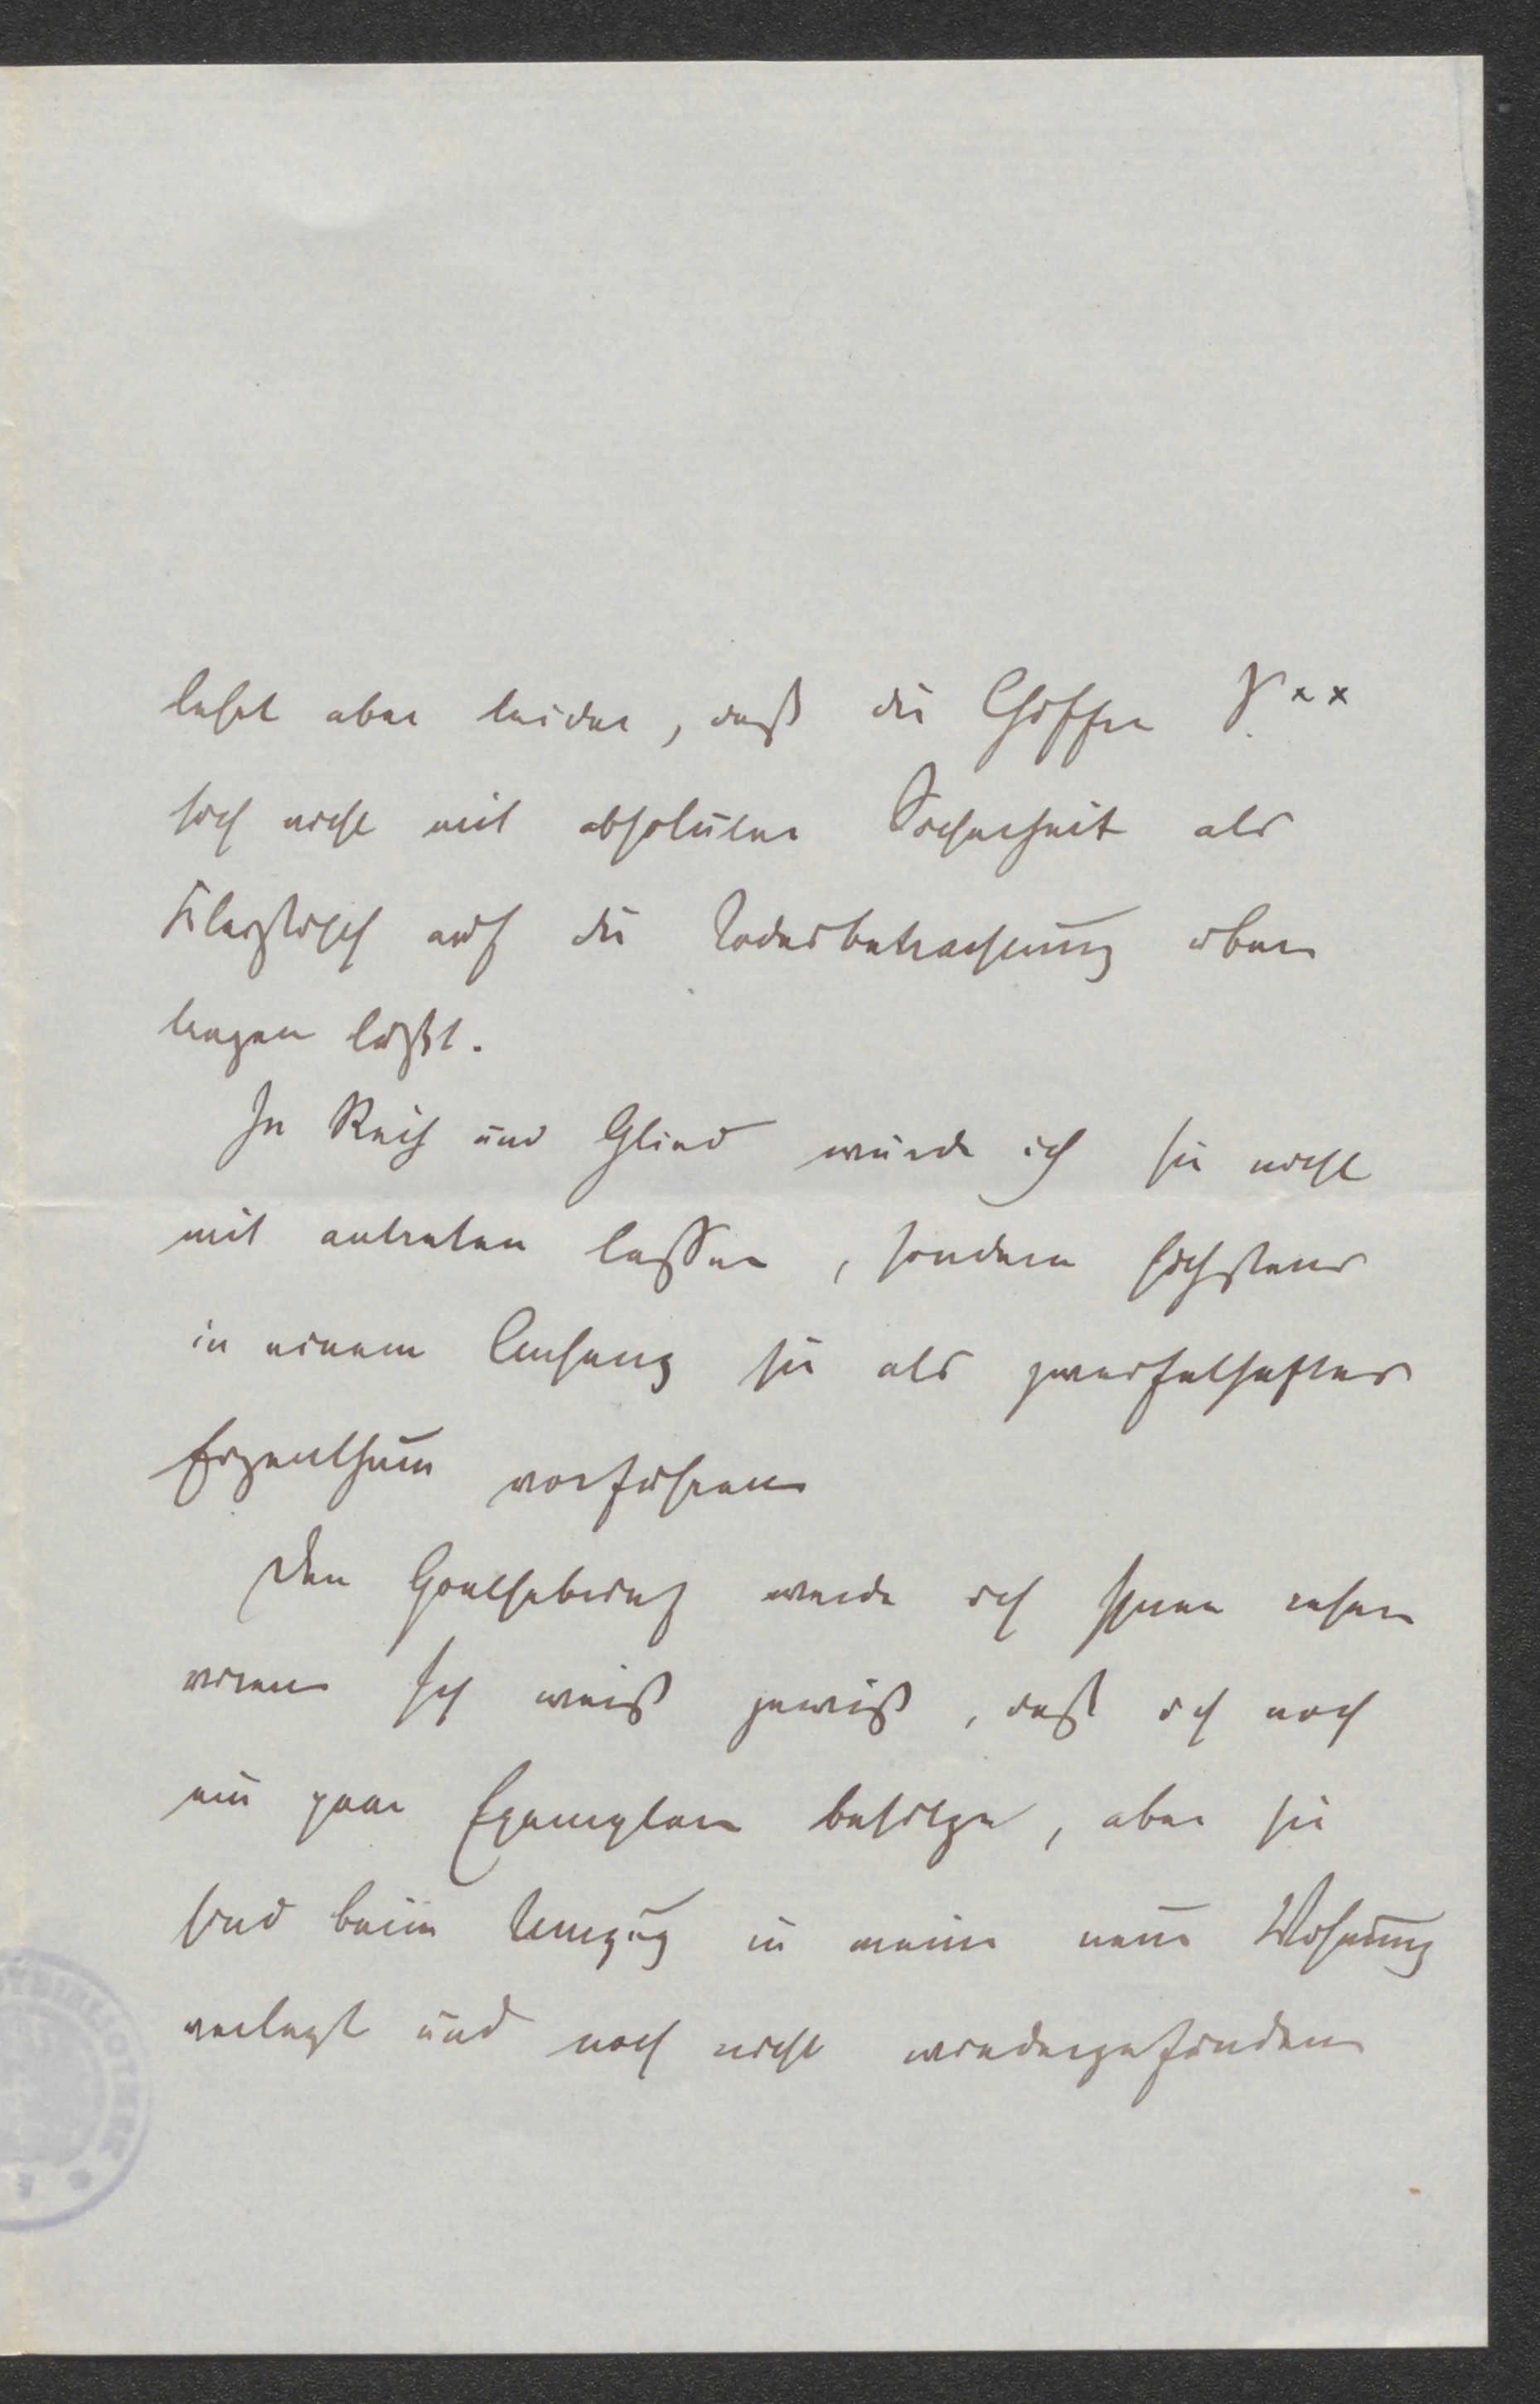 lehrt aber leider, daß die Chiffre γ. xx
sich nicht mit absoluter Sicherheit als
Kleistisch auf die Todesbetrachtung über
tragen läßt.
In Reih und Glied würde ich sie nicht
mit antreten lassen, sondern höchstens
in einem Anhang sie als zweifelhaftes
Eigenthum vorführen
Den Goethebrief werde ich Ihnen
Ich weiß gewiß, daß ich noch
ein paar Exemplare besitze, aber sie
sind beim Umzug in meine neue Wohnung
verlegt und noch nicht wiedergefunden